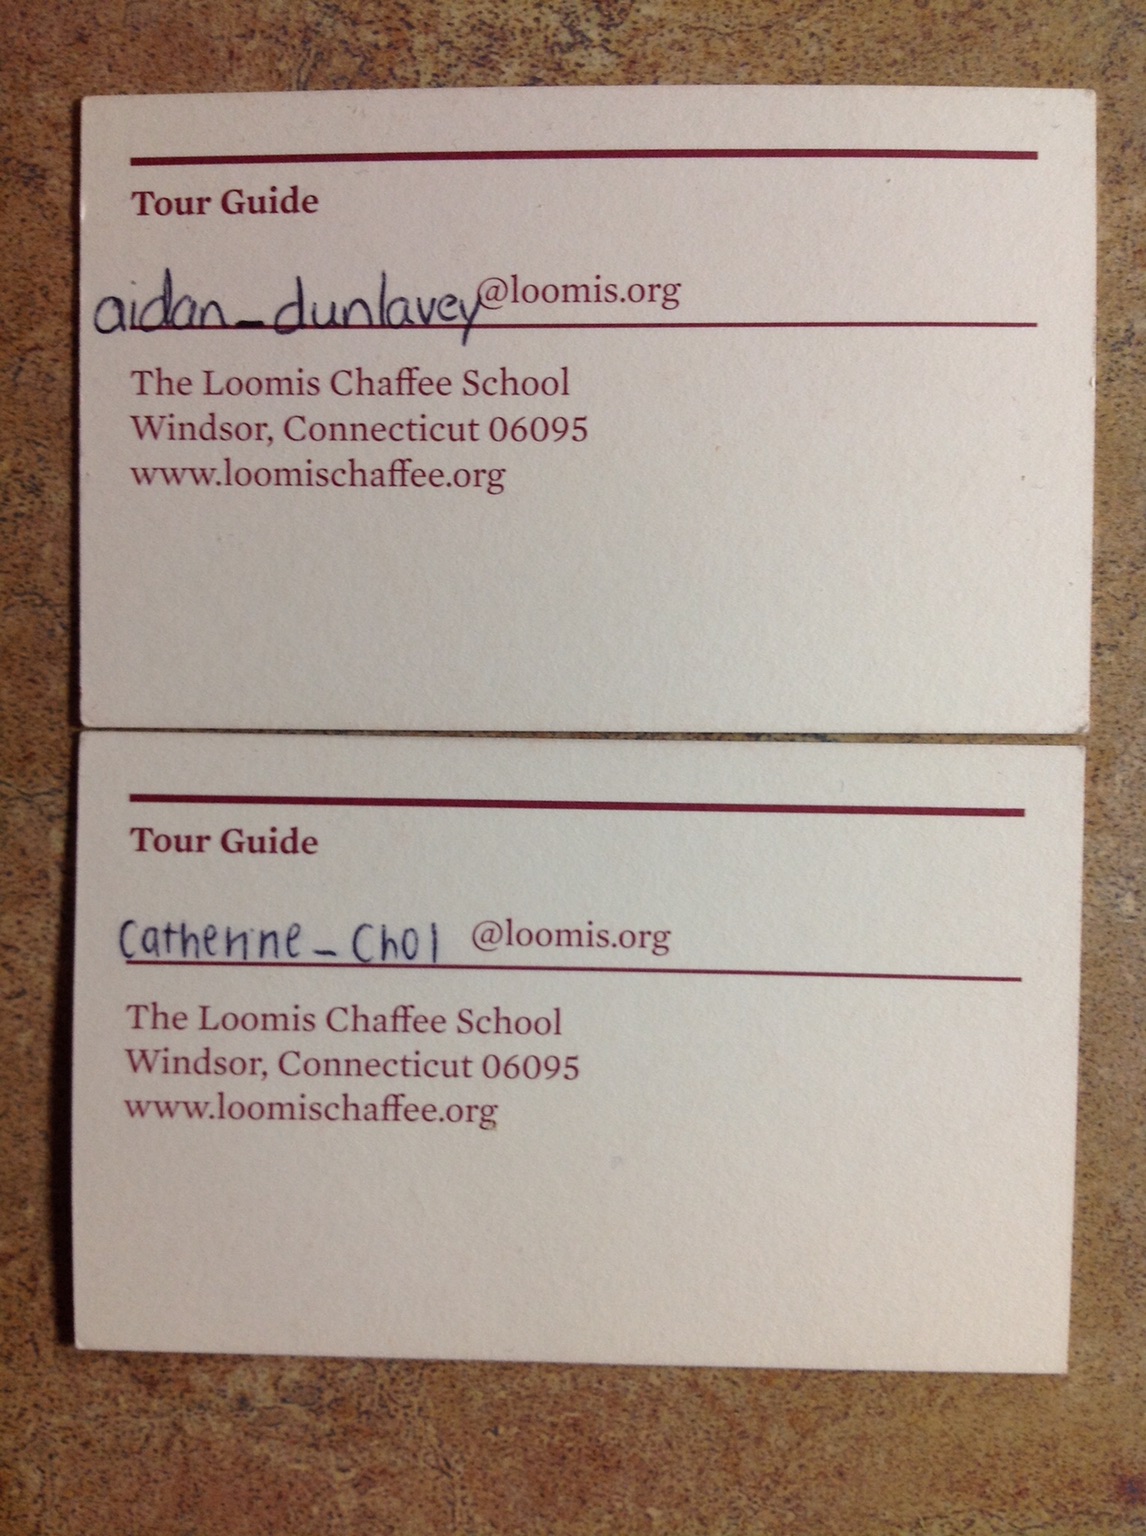 Tour Guide
aidan_dunlavey@loomis.org
The Loomis Chaffee School
Windsor, Connecticut 06095
www.loomischaffee.org
Tour Guide
Catherine_Choi @loomis.org
The Loomis Chaffee School
Windsor, Connecticut 06095
www.loomischaffee.org